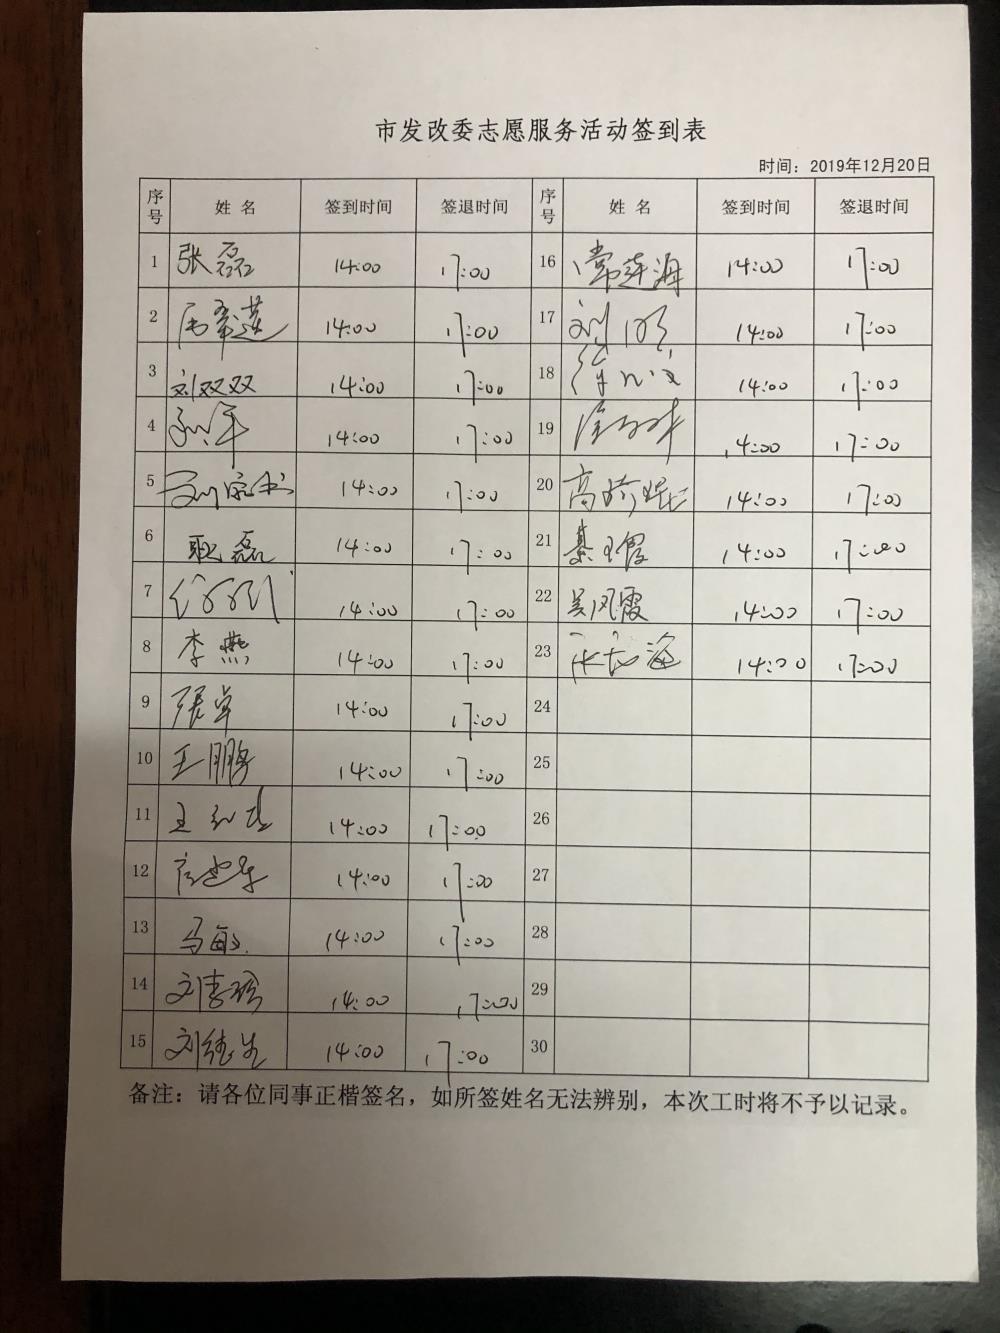 市发改委志愿服务活动签到表
时间：2019年12月20日
序号 姓 名 签到时间 签退时间 序号 姓 名 签到时间 签退时间
1 张磊 14:00 17:00 16 常莲海 14:00 17:00
2 14:00 17:00 17 刘 14:00 17:00
3 刘双双 14:00 17:00 18 14:00 17:00
4 14:00 17:00 19 14:00 17:00
5 刘 14:00 17:00 20 高 14:00 17:00
6 耿磊 14:00 17:00 21 綦玉霞 14:00 17:00
7 14:00 17:00 22 吴凤霞 14:00 17:00
8 李燕 14:00 17:00 23 海 14:00 17:00
9 张卓 14:00 17:00 24
10 王鹏 14:00 17:00 25
11 王 14:00 17:00 26
12 14:00 17:00 27
13 马敏 14:00 17:00 28
14 刘 14:00 17:00 29
15 刘 14:00 17:00 30
备注：请各位同事正楷签名，如所签姓名无法辨别，本次工时将不予以记录。